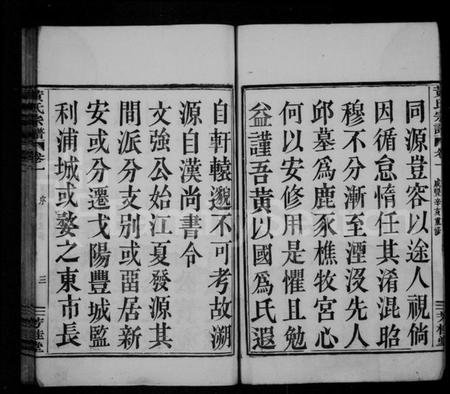 黃氏宗譜 卷一 咸豐辛亥重修
同源豈容以途人視倘
因循怠惰任其淆混昭
穆不分漸至湮沒先人
邱墓爲鹿豕樵牧宮心
何以安修用是懼且勉
益謹吾黃以國爲氏遐
自軒轅邈不可考故溯
源自漢尚書令
文強公始江夏發源其
間派分支別或畱居新
安或分遷弋陽豐城監
利浦城或婺之東市長
黃氏宗譜 卷一 序 三